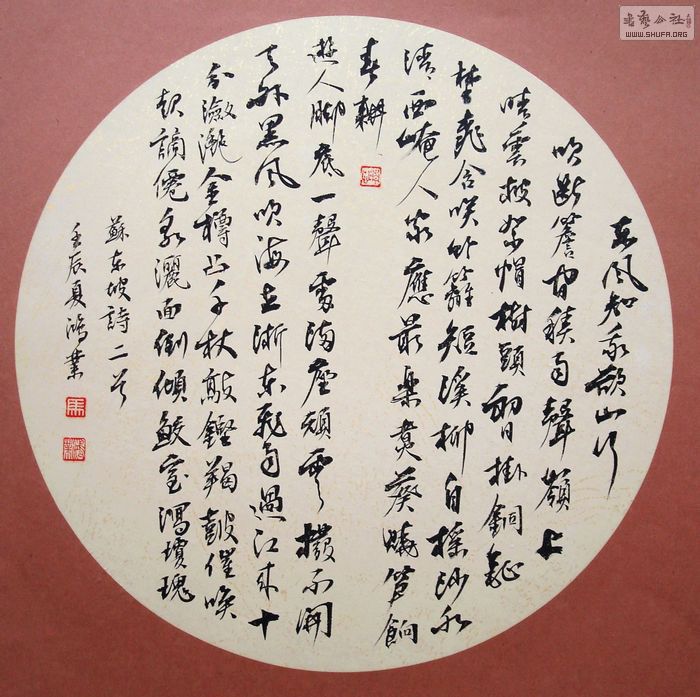 東風知我欲山行
吹斷簷間積雨聲嶺上
晴雲披絮帽樹頭初日掛銅鉦
埜桃含笑竹籬短溪柳自搖沙水
清西崦人家應最樂煮葵燒筍餉
春耕
遊人腳底一聲雷滿座頑雲撥不開
天外黑風吹海立浙東飛雨過江來十
分瀲灩金樽凸千杖敲鏗羯鼓催喚
起謫僊泉灑面倒傾鮫室瀉瓊瑰
蘇東坡詩二首
壬辰夏鴻業
書藝公社
WWW.SHUFA.ORG